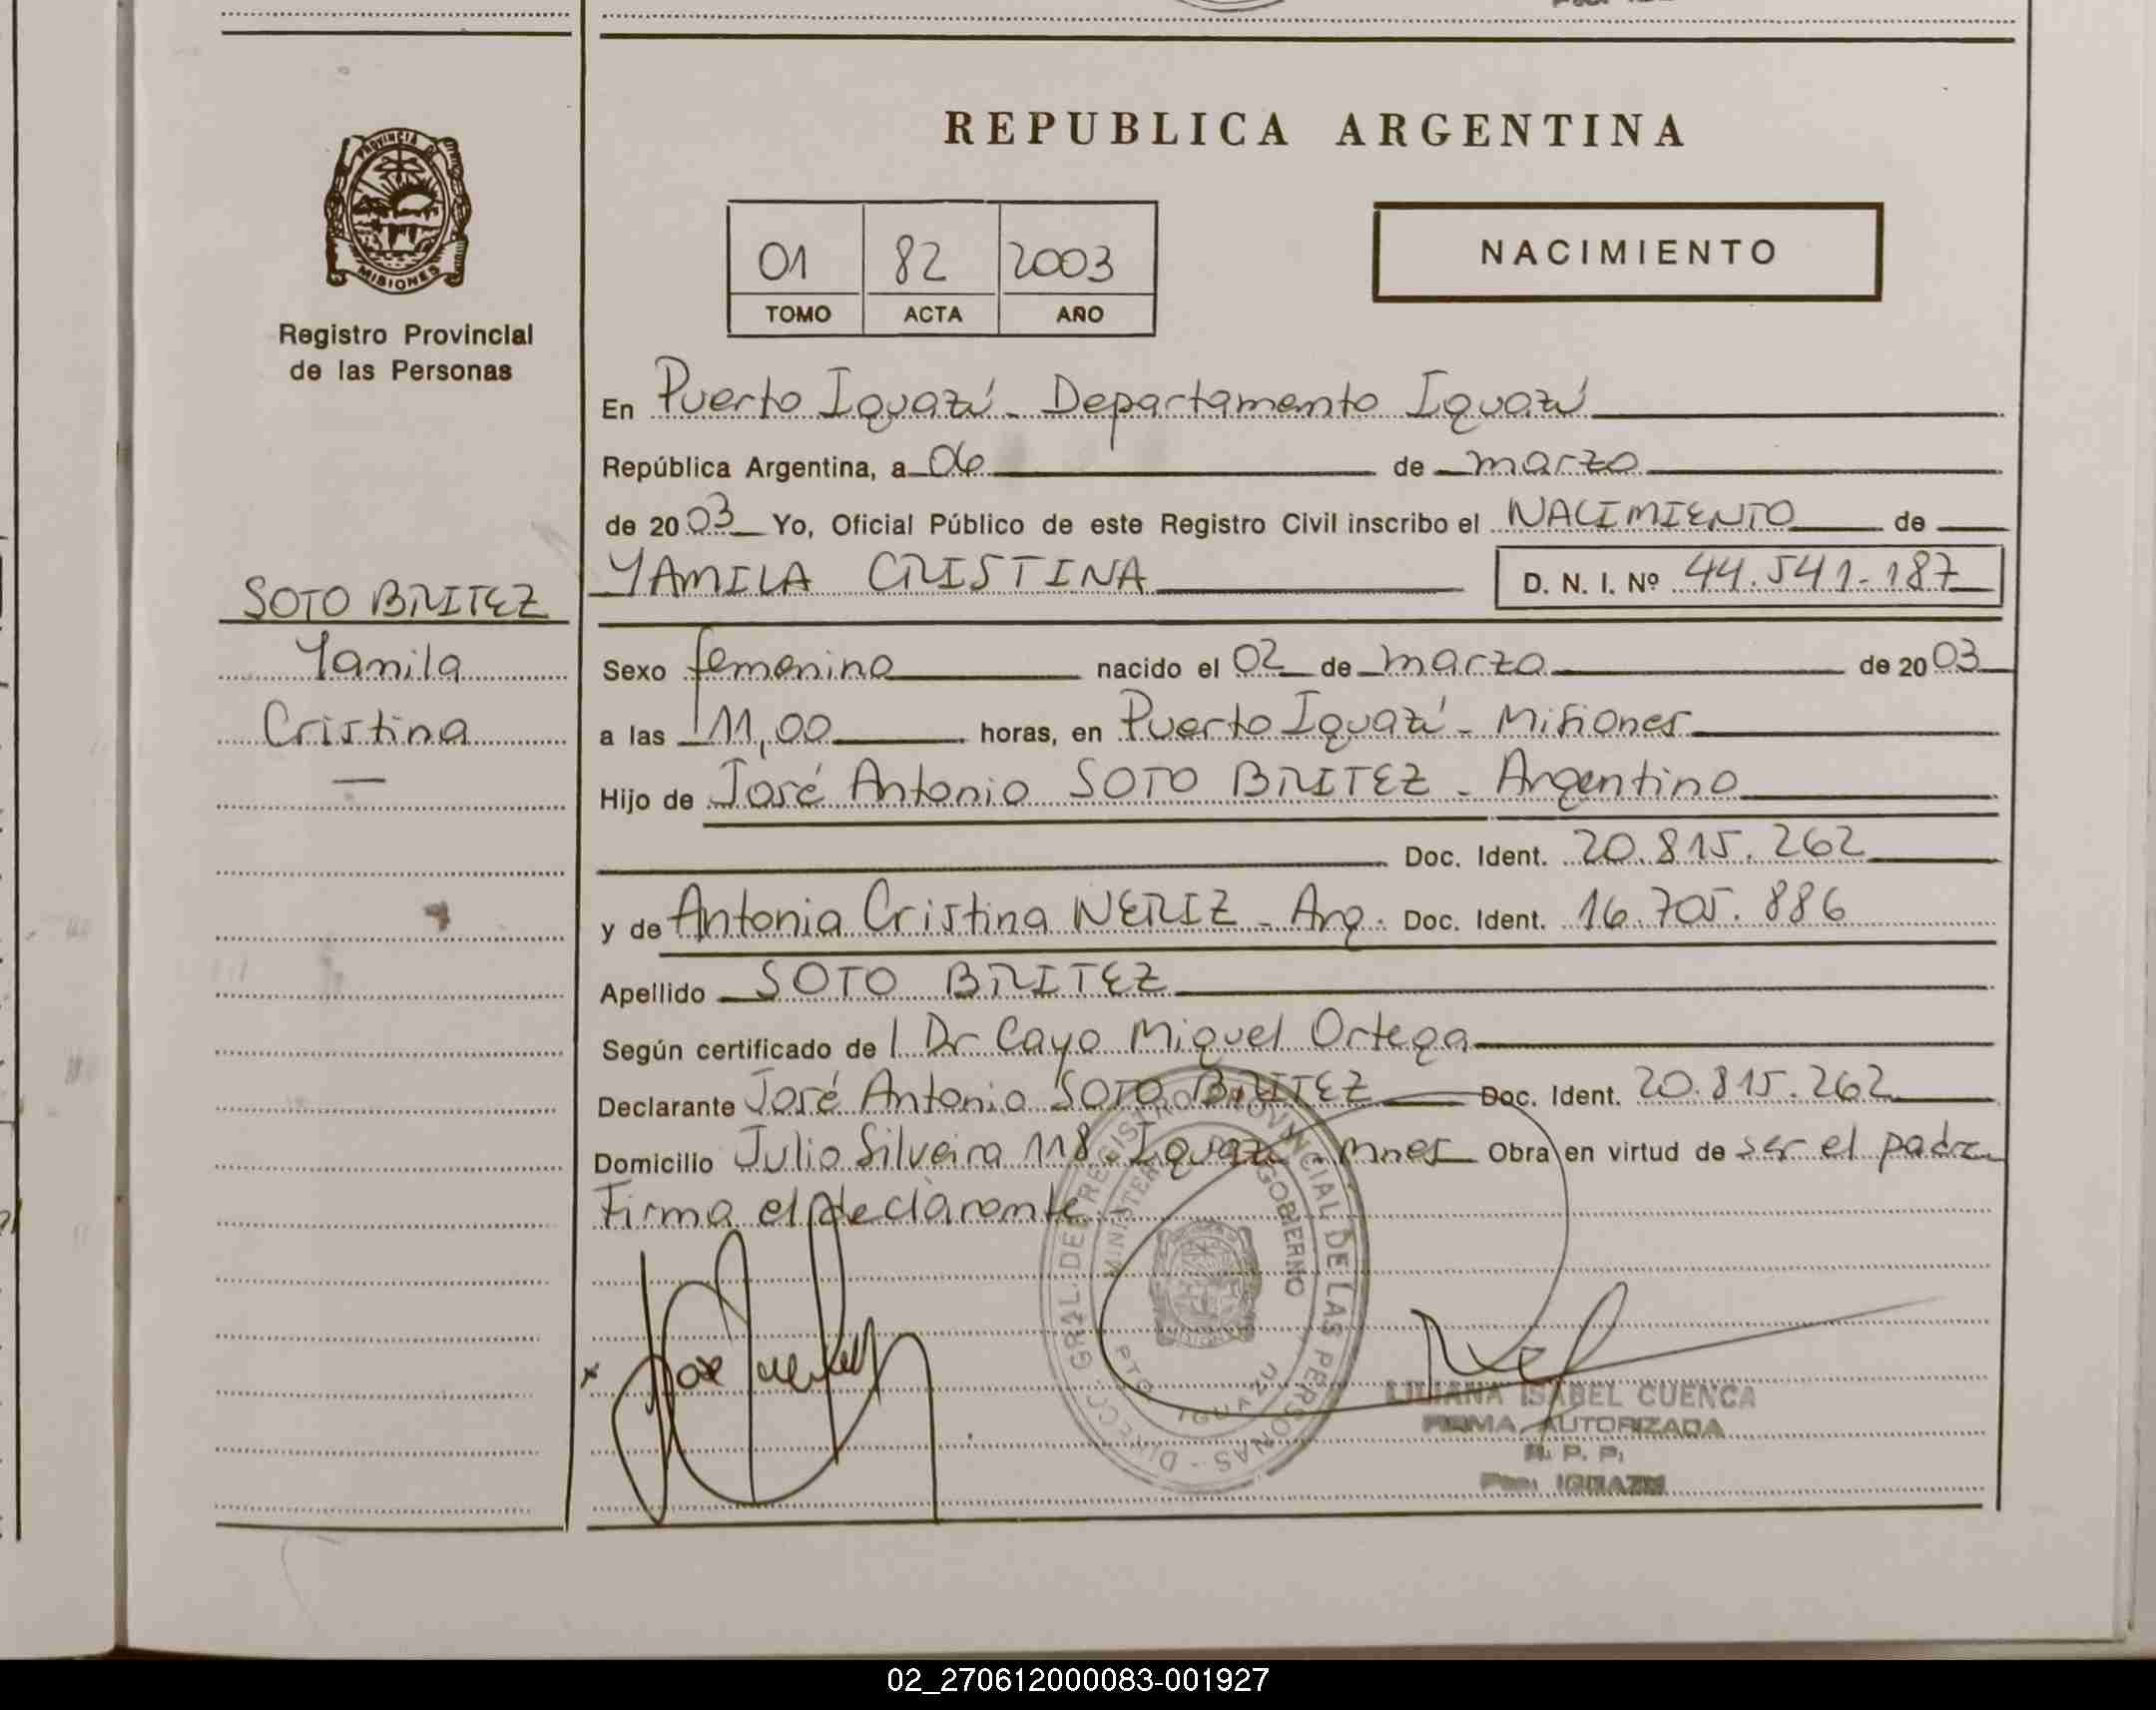 REPUBLICA ARGENTINA
PROVINCIA DE
MISIONES
Registro Provincial
de las Personas
01 82 2003
TOMO ACTA AÑO
NACIMIENTO
En Puerto Iguazú - Departamento Iguazú
República Argentina, a 06 de marzo
de 2003 Yo, Oficial Público de este Registro Civil inscribo el NACIMIENTO de
YAMILA CRISTINA D. N. I. Nº 44.541.187
SOTO BRITEZ
Yamila
Cristina
Sexo femenino nacido el 02 de marzo de 2003
a las 11,00 horas, en Puerto Iguazú - Misiones
Hijo de José Antonio SOTO BRITEZ - Argentino
Doc. Ident. 20.815.262
y de Antonia Cristina NERIZ - Arg. Doc. Ident. 16.705.886
Apellido SOTO BRITEZ
Según certificado del Dr Cayo Miguel Ortega
Declarante José Antonio SOTO BRITEZ Doc. Ident. 20.815.262
Domicilio Julio Silveira 118 - Iguazú - Mnes Obra en virtud de ser el padre
Firma el declarante
DIRECC. GRAL. DEL REGISTRO PROVINCIAL DE LAS PERSONAS
MINISTERIO GOBIERNO
PTO IGUAZU
LILIANA ISABEL CUENCA
FIRMA AUTORIZADA
R. P. P.
IGUAZU
02_270612000083-001927